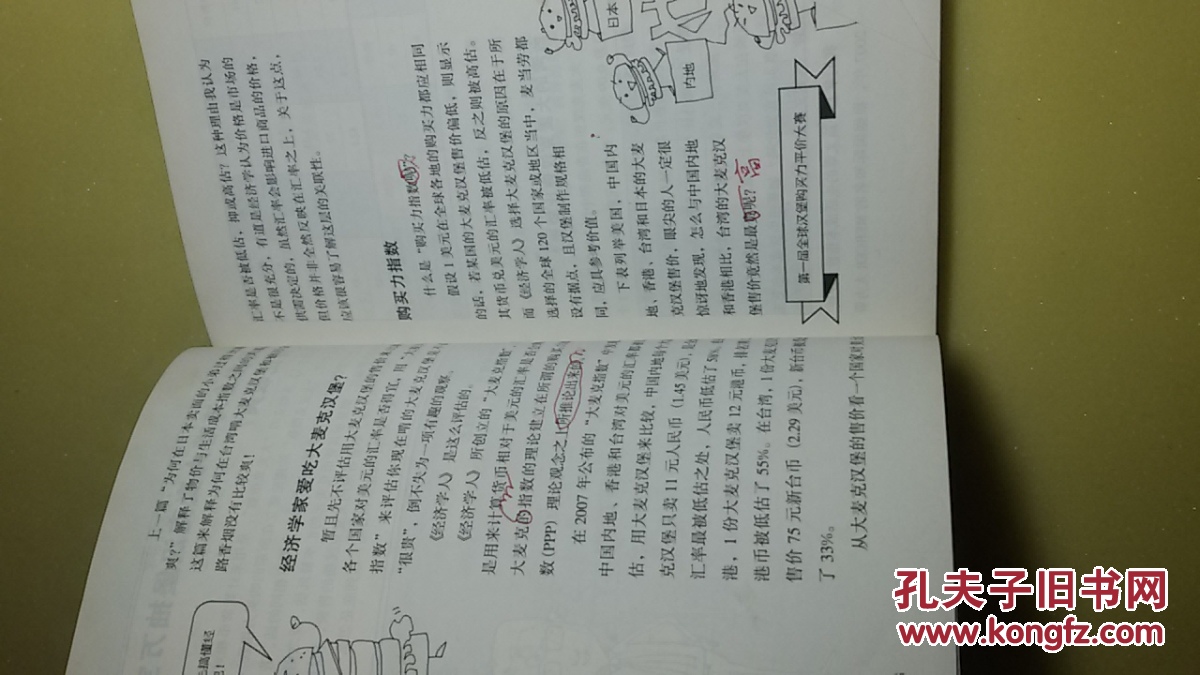 上一篇“为何在日本卖面的小弟过得
爽?”解释了物价与生活成本指数之间的
这篇来解释为何在台湾啃大麦克汉堡
路香烟没有比较爽!
经济学家爱吃大麦克汉堡?
暂且先不评估用大麦克汉堡的售价来
各个国家对美元的汇率是否得宜,用“大麦
指数”来评估你现在啃的大麦克汉堡是
“很贵”,倒不失为一项有趣的观察。
《经济学人》是这么评估的。
《经济学人》所创立的“大麦克指数”
是用来计算货币相对于美元的汇率是否
大麦克的指数的理论建立在所谓的购买
数(PPP)理论观念之上所推论出来的
在2007年公布的“大麦克指数”中
中国内地、香港和台湾对美元的汇率都
估,用大麦克汉堡来比较,中国内地每个
克汉堡只卖11元人民币(1.45美元),是
汇率最被低估之处,人民币低估了58%
港,1份大麦克汉堡卖12元港币,排名
港币被低估了55%。在台湾,1份大麦克
售价75元新台币(2.29美元),新台币被
了33%。
从大麦克汉堡的售价看一个国家对美
搞懂经
汇率是否被低估,抑或高估?这种理由我认为
不是很充分,有道是经济学认为价格是市场的
供需决定的,虽然汇率会影响进口商品的价格,
但价格并非全然反映在汇率之上,关于这点,
应该很容易了解这层的关联性。
购买力指数
什么是“购买力指数呢?
假设1美元在全球各地的购买力都应相同
的话,若某国的大麦克汉堡售价偏低,则显示
其货币兑美元的汇率被低估,反之则被高估。
而《经济学人》选择大麦克汉堡的原因在于所
选择的全球120个国家或地区当中,麦当劳都
设有据点,且汉堡制作规格相
同,应具参考价值。
下表列举美国,中国内
地、香港、台湾和日本的大麦
克汉堡售价,眼尖的人一定很
惊讶地发现,怎么与中国内地
和香港相比,台湾的大麦克汉
堡售价竟然是最贵呢?
高
日本
内地
第一届全球汉堡购买力平价大赛
孔夫子旧书网
www.kongfz.com